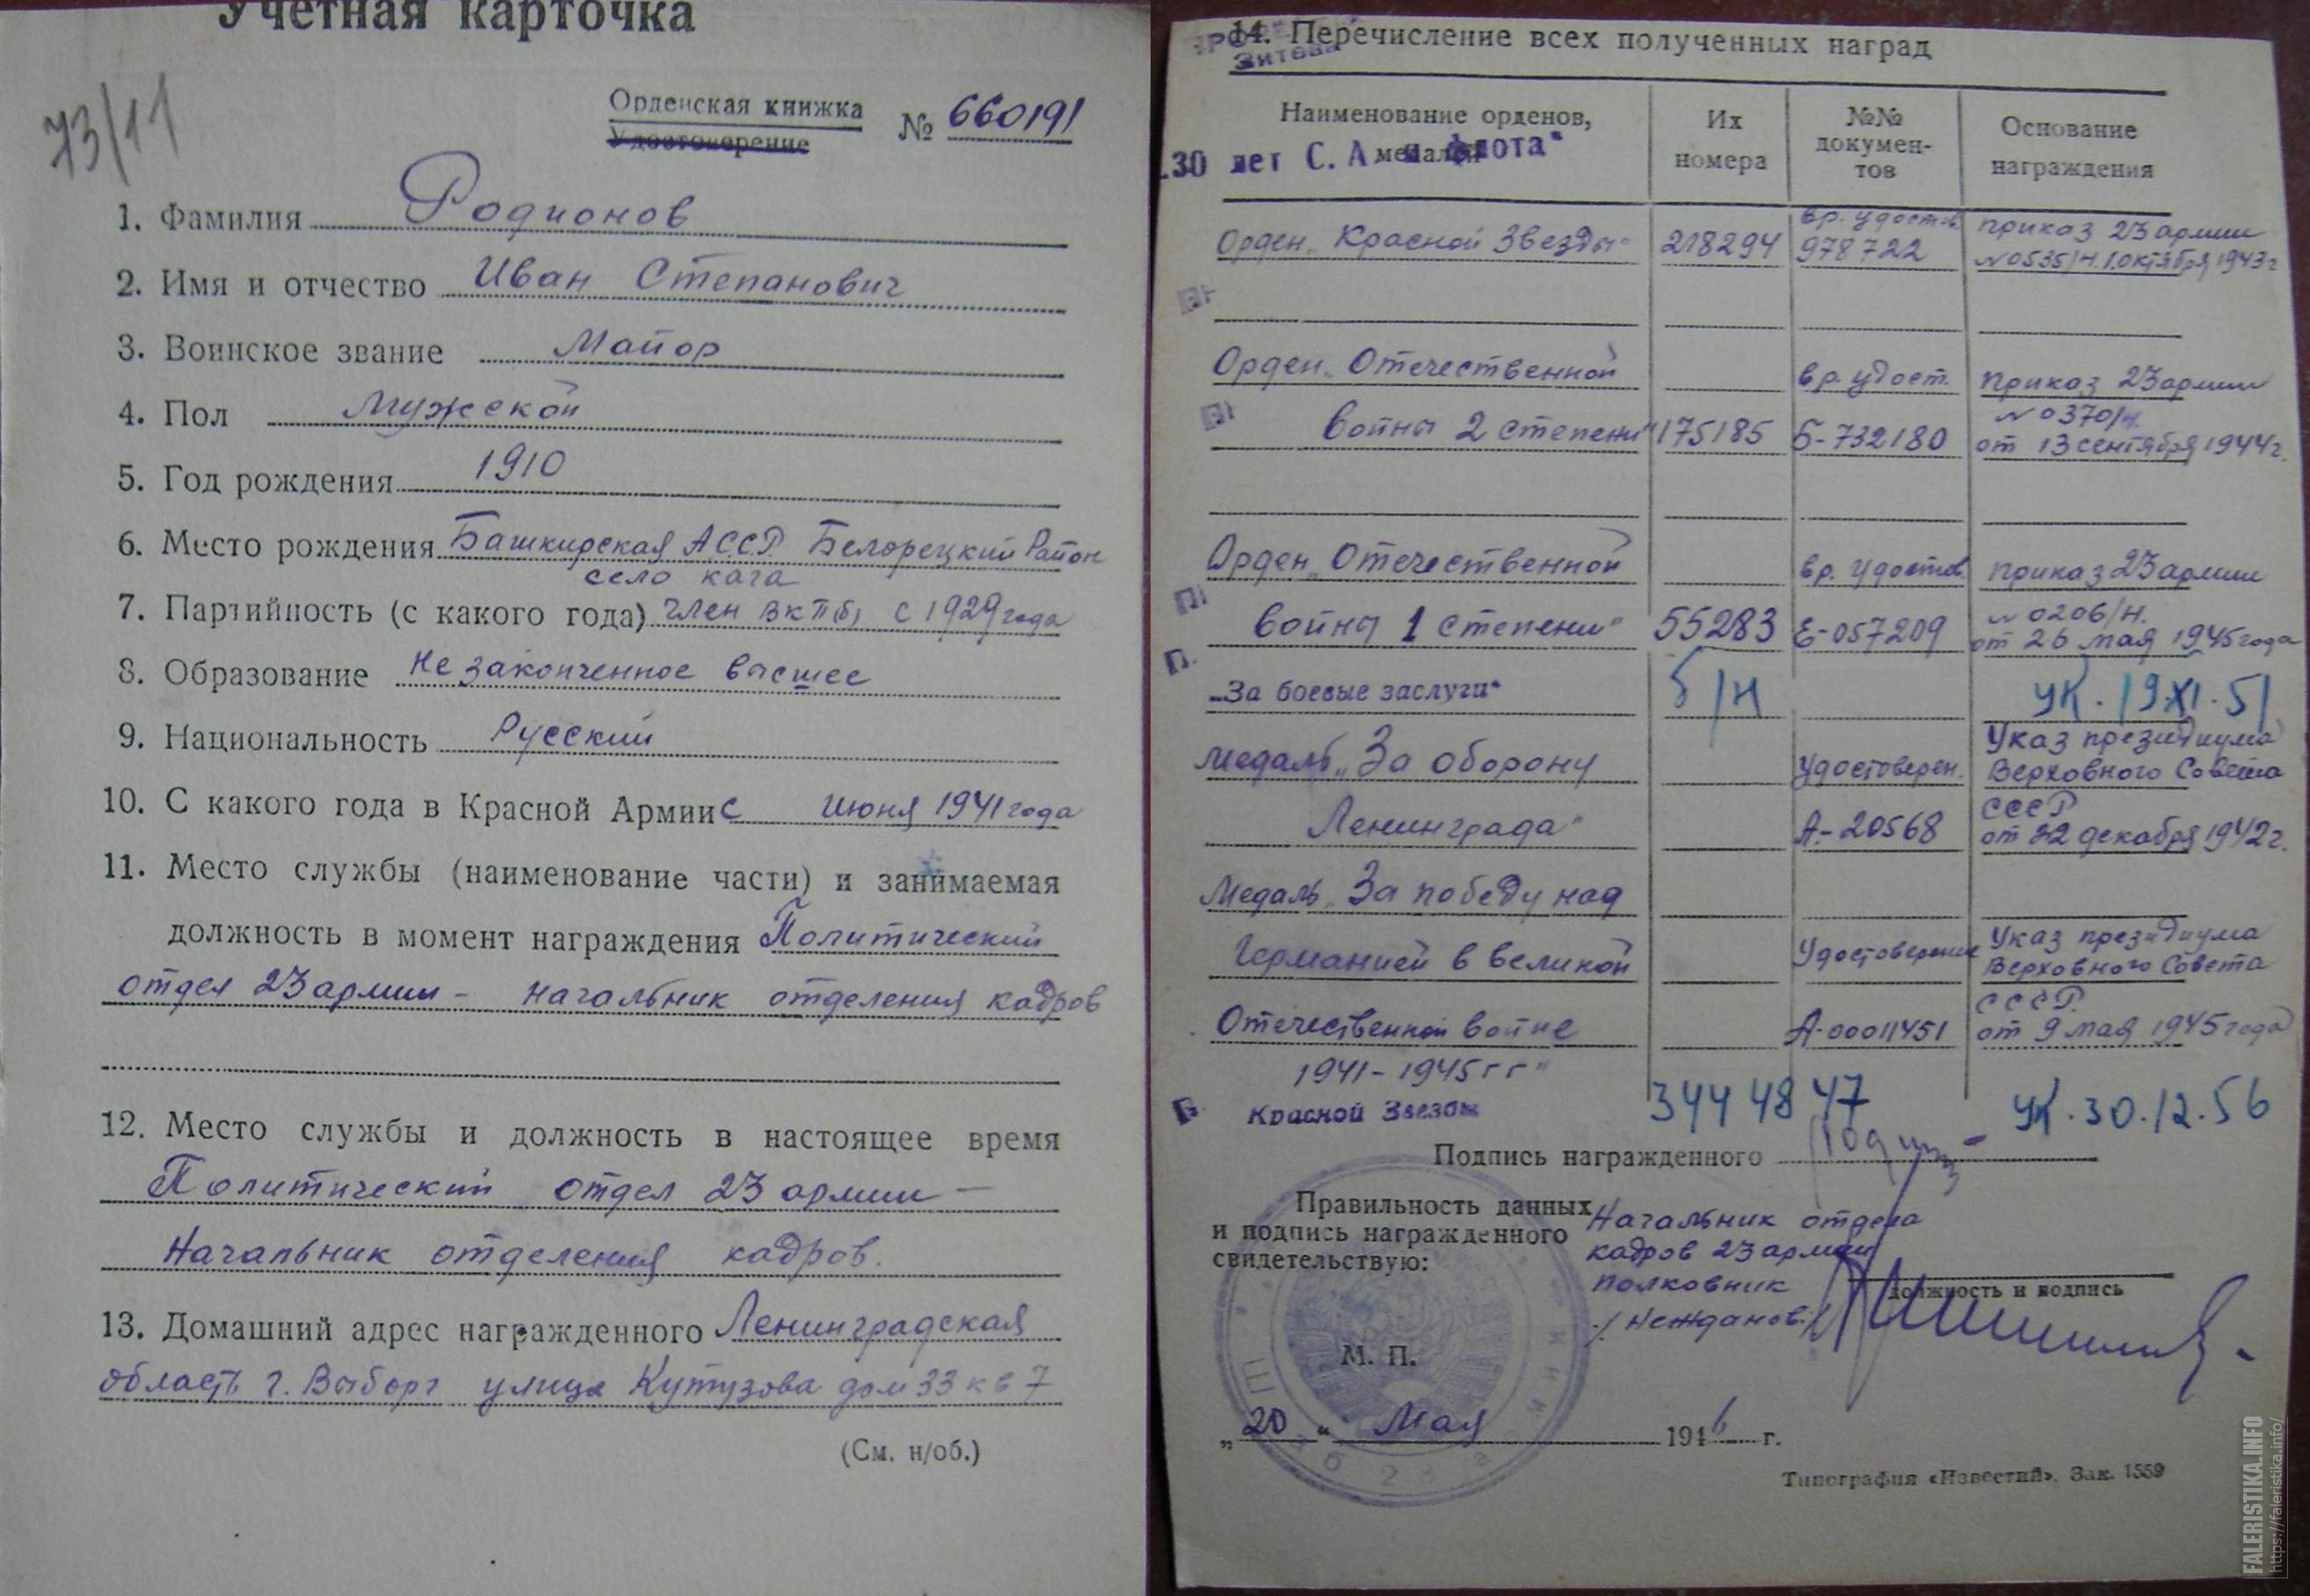 Учетная карточка
73/11
Орденская книжка
Удостоверение
№ 660191
1. Фамилия Родионов
2. Имя и отчество Иван Степанович
3. Воинское звание Майор
4. Пол Мужской
5. Год рождения 1910
6. Место рождения Башкирская А.С.С.Р. Белорецкий Район
село кага
7. Партийность (с какого года) член ВКП(б) с 1929 года
8. Образование Не законченное высшее
9. Национальность Русский
10. С какого года в Красной Армии с июня 1941 года
11. Место службы (наименование части) и занимаемая
должность в момент награждения Политический
отдел 23 армии – начальник отделения кадров
12. Место службы и должность в настоящее время
Политический отдел 23 армии –
Начальник отделения кадров.
13. Домашний адрес награжденного Ленинградская
область г. Выборг улица Кутузова дом 33 кв 7
(См. н/об.)
14. Перечисление всех полученных наград
Наименование орденов, медалей
Их номера
№№ докумен-
тов
Основание награждения
30 лет С. А. и флота"
Орден „Красной Звезды" 218294 вр. удостов. 978722 приказ 23 армии №0535/н. 1 октября 1943г
Орден „Отечественной вр. удост. приказ 23 армии
№0370/н.
войны 2 степени" 175185 Б-732180 от 13 сентября 1944г.
Орден „Отечественной вр. удостов. приказ 23 армии
№0206/н.
войны 1 степени" 55283 Е-057209 от 26 мая 1945 года
„За боевые заслуги" б/н УК. 19.XI.51
Медаль „За оборону Удостоверен. Указ президиума Верховного Совета
Ленинграда" А-20568 СССР от 22 декабря 1942г.
Медаль „За победу над
Германией в великой Удостоверение Указ президиума Верховного Совета
Отечественной войне А-00011451 СССР. от 9 мая 1945 года
1941-1945гг"
Красной Звезды 3444847 УК. 30.12.56
Подпись награжденного
Правильность данных
и подпись награжденного
свидетельствую:
Начальник отдела
кадров 23 армии
полковник
/Нежданов./
должность и подпись
М. П.
„20" Мая 1946 г.
Типография «Известий». Зак. 1559
FALERISTIKA.INFO
https://faleristika.info/